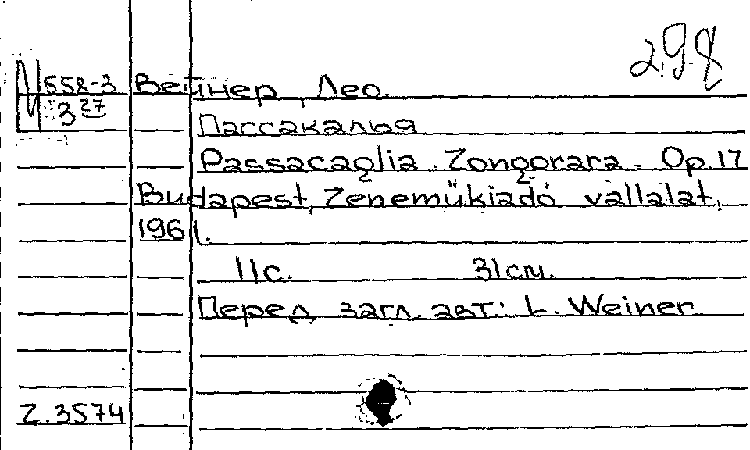 298
М 558-3 Вейнер, Лео.
3 27
Пассакалья
Passacaglia. Zongorara. Op. 17
Budapest, Zeneműkiadó vállalat,
1961.
11с. 31см.
Перед загл. авт.: L. Weiner
Z.3574